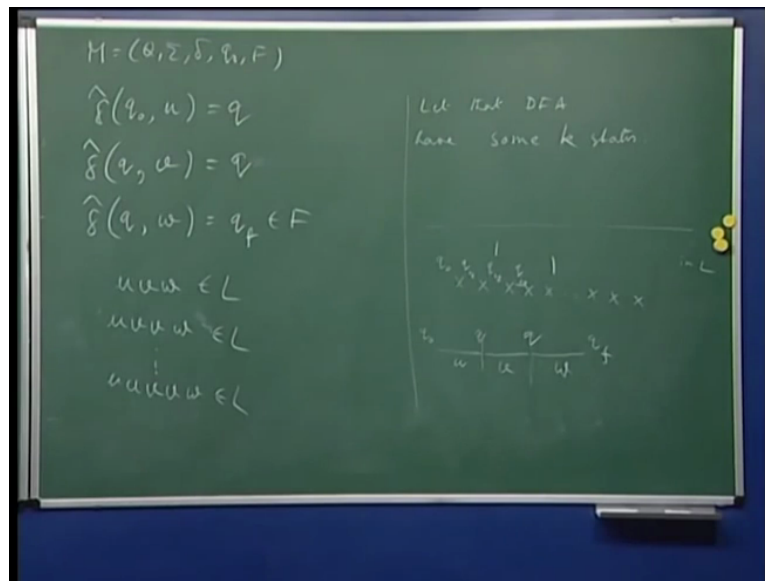 M = (Q, Σ, δ, q₀, F)
δ̂(q₀, u) = q
δ̂(q, v) = q
δ̂(q, w) = q_f ∈ F
uvw ∈ L
uvvw ∈ L
⋮
uvvvw ∈ L
Let that DFA
have some k states.
in L
q₀
x x x x x . x x x
q₀ q q q_f
u v w